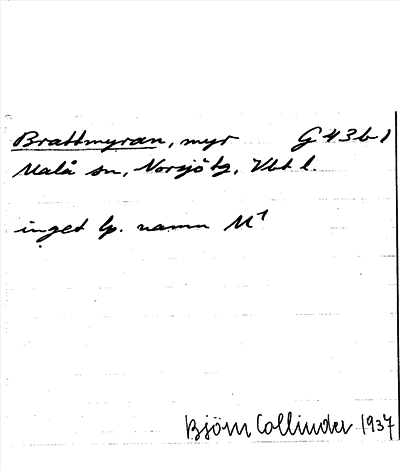 Brattmyran, myr G 43 b 1
Malå sn, Norsjö tg, Vbt l.
inget lp. namn M¹
Björn Collinder 1937